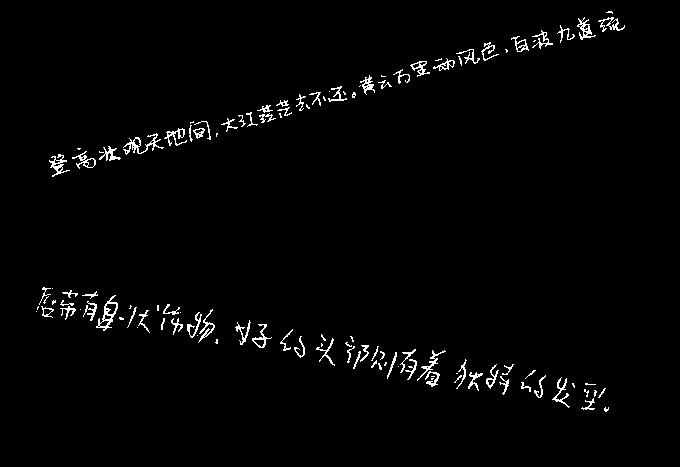 登高壮观天地间,大江茫茫去不还。黄云万里动风色,白波九道流
唇带有盘状饰物,好的头部则有着独特的发型。